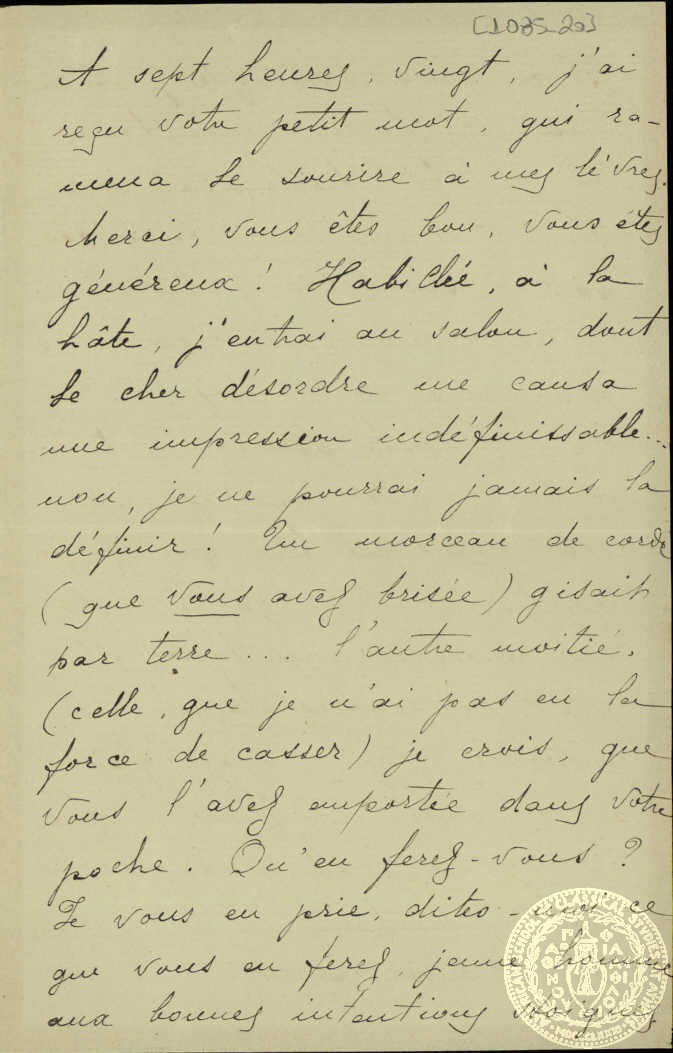 [1035-20]
A sept heures, vingt, j'ai
reçu votre petit mot, qui ra-
mena le sourire à mes lèvres.
Merci, vous êtes bon, vous êtes
généreux! Habillée, à la
hâte, j'entrai au salon, dont
le cher désordre me causa
une impression indéfinissable...
non, je ne pourrai jamais la
définir! Un morceau de corde
(que vous avez brisée) gisait
par terre... l'autre moitié,
(celle, que je n'ai pas eu la
force de casser) je crois, que
vous l'avez emportée dans votre
poche. Qu'en ferez-vous?
Je vous en prie, dites-moi ce
que vous en ferez, jeune homme
aux bonnes intentions